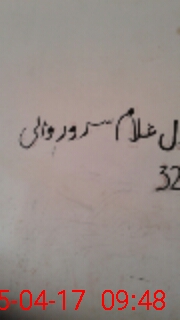 ل غلام سرور والی
32
5-04-17 09:48